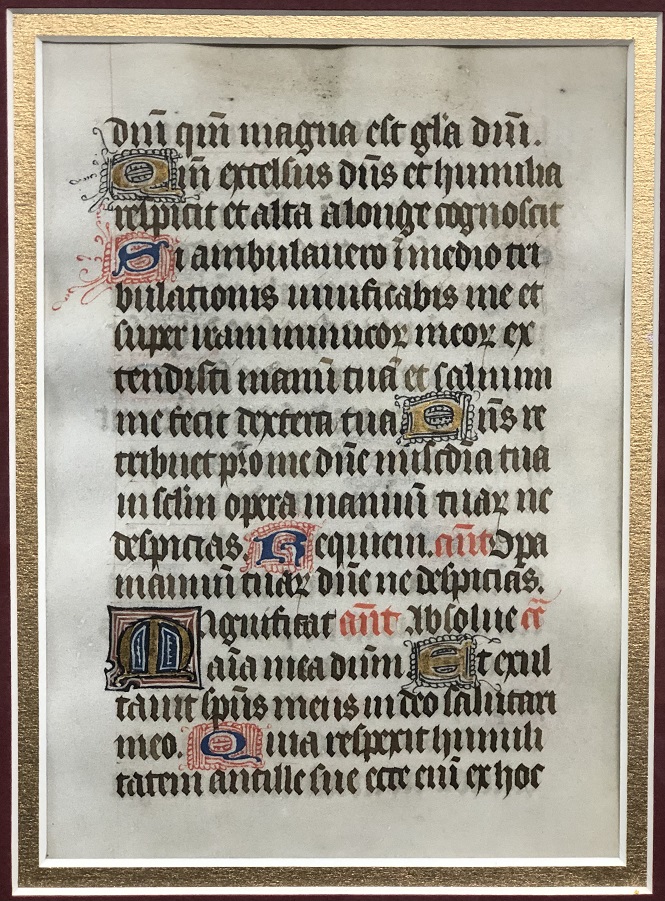 dnī qm̄ magna est gl̄a dnī.
Qm̄ excelsus dn̄s et humilia
respicit et alta a longe cognoscit
Si ambulauero ī medio tri
bulationis uiuificabis me et
super iram inimicoꝝ meoꝝ ex
tendisti manū tuā et saluum
me fecit dextera tua Dn̄s re
tribuet pro me dn̄e mis̄cdia tua
in sc̄lm opera manuū tuaꝝ ne
despicias. Requiem. ant̄ Opa
manuū tuaꝝ dn̄e ne despicias.
Magnificat ant̄ Absolue
aīa mea dnm̄ Et exul
tauit sp̄us meus in deo salutari
meo. Quia respexit humili
tatem ancille sue ecce enī ex hoc